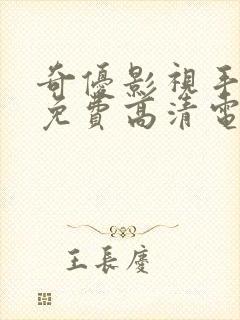 奇優影視手
免費高清電
王長慶